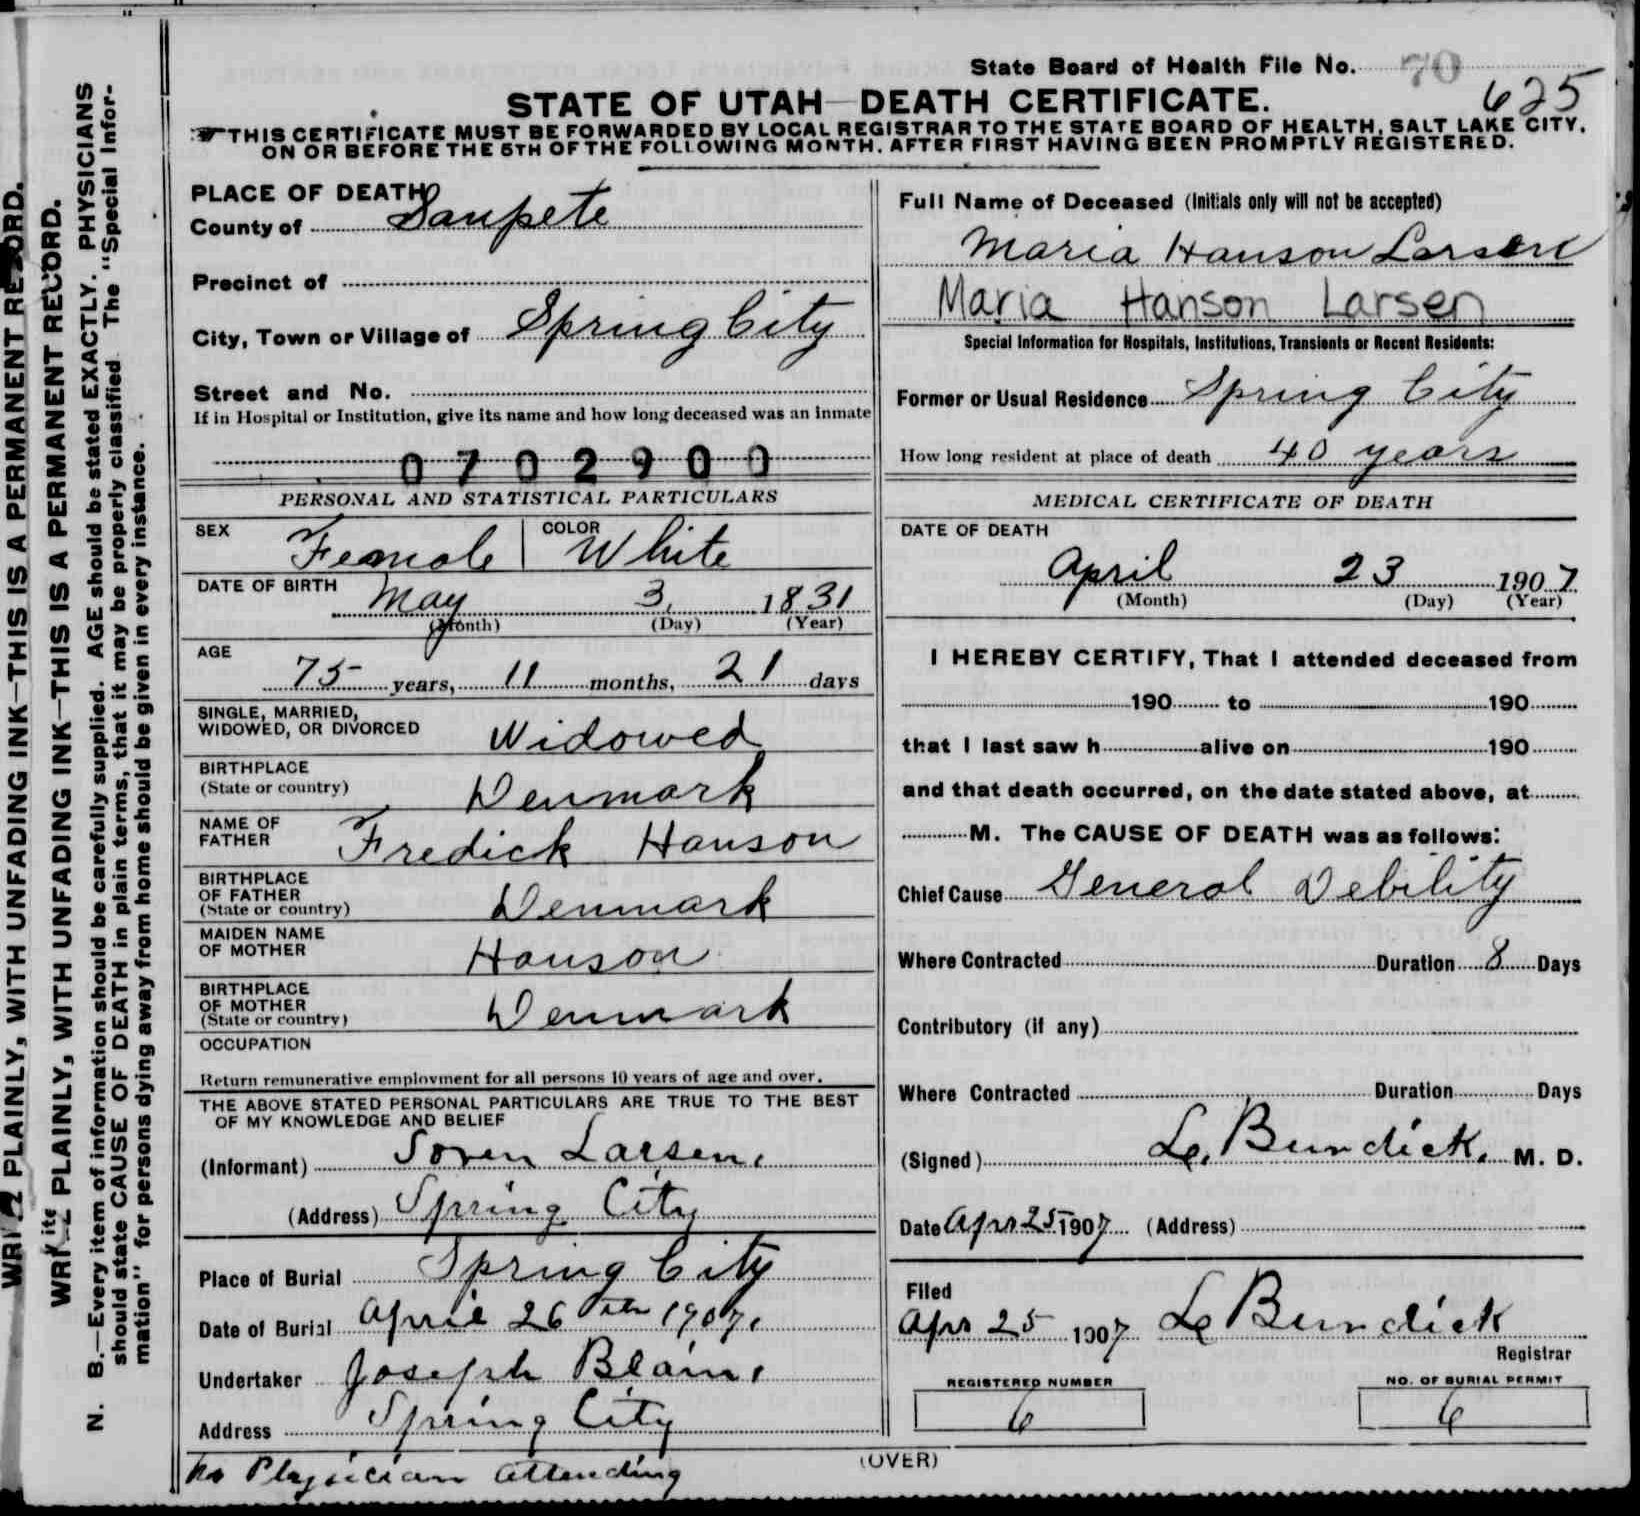 State Board of Health File No. 70
625
STATE OF UTAH—DEATH CERTIFICATE.
THIS CERTIFICATE MUST BE FORWARDED BY LOCAL REGISTRAR TO THE STATE BOARD OF HEALTH, SALT LAKE CITY,
ON OR BEFORE THE 5TH OF THE FOLLOWING MONTH, AFTER FIRST HAVING BEEN PROMPTLY REGISTERED.
PLACE OF DEATH
County of Sanpete
Precinct of
City, Town or Village of Spring City
Street and No.
If in Hospital or Institution, give its name and how long deceased was an inmate
0702900
PERSONAL AND STATISTICAL PARTICULARS
SEX Female COLOR White
DATE OF BIRTH May 3, 1831
(Month) (Day) (Year)
AGE
75 years, 11 months, 21 days
SINGLE, MARRIED,
WIDOWED, OR DIVORCED Widowed
BIRTHPLACE
(State or country) Denmark
NAME OF
FATHER Fredick Hanson
BIRTHPLACE
OF FATHER
(State or country) Denmark
MAIDEN NAME
OF MOTHER Hanson
BIRTHPLACE
OF MOTHER
(State or country) Denmark
OCCUPATION
Return remunerative employment for all persons 10 years of age and over.
THE ABOVE STATED PERSONAL PARTICULARS ARE TRUE TO THE BEST
OF MY KNOWLEDGE AND BELIEF
(Informant) Soren Larsen,
(Address) Spring City
Place of Burial Spring City
Date of Burial April 26th 1907,
Undertaker Joseph Blain,
Address Spring City
No Physician attending
Full Name of Deceased (Initials only will not be accepted)
Maria Hanson Larsen
Maria Hanson Larsen
Special Information for Hospitals, Institutions, Transients or Recent Residents:
Former or Usual Residence Spring City
How long resident at place of death 40 years
MEDICAL CERTIFICATE OF DEATH
DATE OF DEATH
April 23 1907
(Month) (Day) (Year)
I HEREBY CERTIFY, That I attended deceased from
190 to 190
that I last saw h alive on 190
and that death occurred, on the date stated above, at
M. The CAUSE OF DEATH was as follows:
Chief Cause General Debility
Where Contracted Duration 8 Days
Contributory (if any)
Where Contracted Duration Days
(Signed) L. Bundick. M. D.
Date Apr 25 1907 (Address)
Filed
Apr 25 1907 L Bundick
Registrar
REGISTERED NUMBER
6
NO. OF BURIAL PERMIT
6
(OVER)
WRITE PLAINLY, WITH UNFADING INK—THIS IS A PERMANENT RECORD.
WRite PLAINLY, WITH UNFADING INK—THIS IS A PERMANENT RECORD.
N. B.—Every item of information should be carefully supplied. AGE should be stated EXACTLY. PHYSICIANS
should state CAUSE OF DEATH in plain terms, that it may be properly classified The "Special Infor-
mation" for persons dying away from home should be given in every instance.